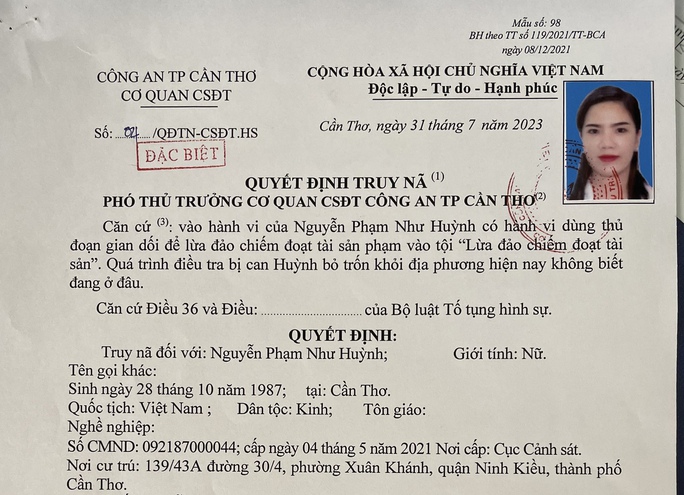 Mẫu số: 98
BH theo TT số 119/2021/TT-BCA
ngày 08/12/2021
CÔNG AN TP CẦN THƠ
CƠ QUAN CSĐT
CỘNG HÒA XÃ HỘI CHỦ NGHĨA VIỆT NAM
Độc lập - Tự do - Hạnh phúc
Số: /QĐTN-CSĐT.HS
ĐẶC BIỆT
Cần Thơ, ngày 31 tháng 7 năm 2023
QUYẾT ĐỊNH TRUY NÃ (1)
PHÓ THỦ TRƯỞNG CƠ QUAN CSĐT CÔNG AN TP CẦN THƠ(2)
Căn cứ (3): vào hành vi của Nguyễn Phạm Như Huỳnh có hành vi dùng thủ
đoạn gian dối để lừa đảo chiếm đoạt tài sản phạm vào tội “Lừa đảo chiếm đoạt tài
sản”. Quá trình điều tra bị can Huỳnh bỏ trốn khỏi địa phương hiện nay không biết
đang ở đâu.
Căn cứ Điều 36 và Điều: .............................. của Bộ luật Tố tụng hình sự.
QUYẾT ĐỊNH:
Truy nã đối với: Nguyễn Phạm Như Huỳnh; Giới tính: Nữ.
Tên gọi khác:
Sinh ngày 28 tháng 10 năm 1987; tại: Cần Thơ.
Quốc tịch: Việt Nam ; Dân tộc: Kinh; Tôn giáo:
Nghề nghiệp:
Số CMND: 092187000044; cấp ngày 04 tháng 5 năm 2021 Nơi cấp: Cục Cảnh sát.
Nơi cư trú: 139/43A đường 30/4, phường Xuân Khánh, quận Ninh Kiều, thành phố
Cần Thơ.